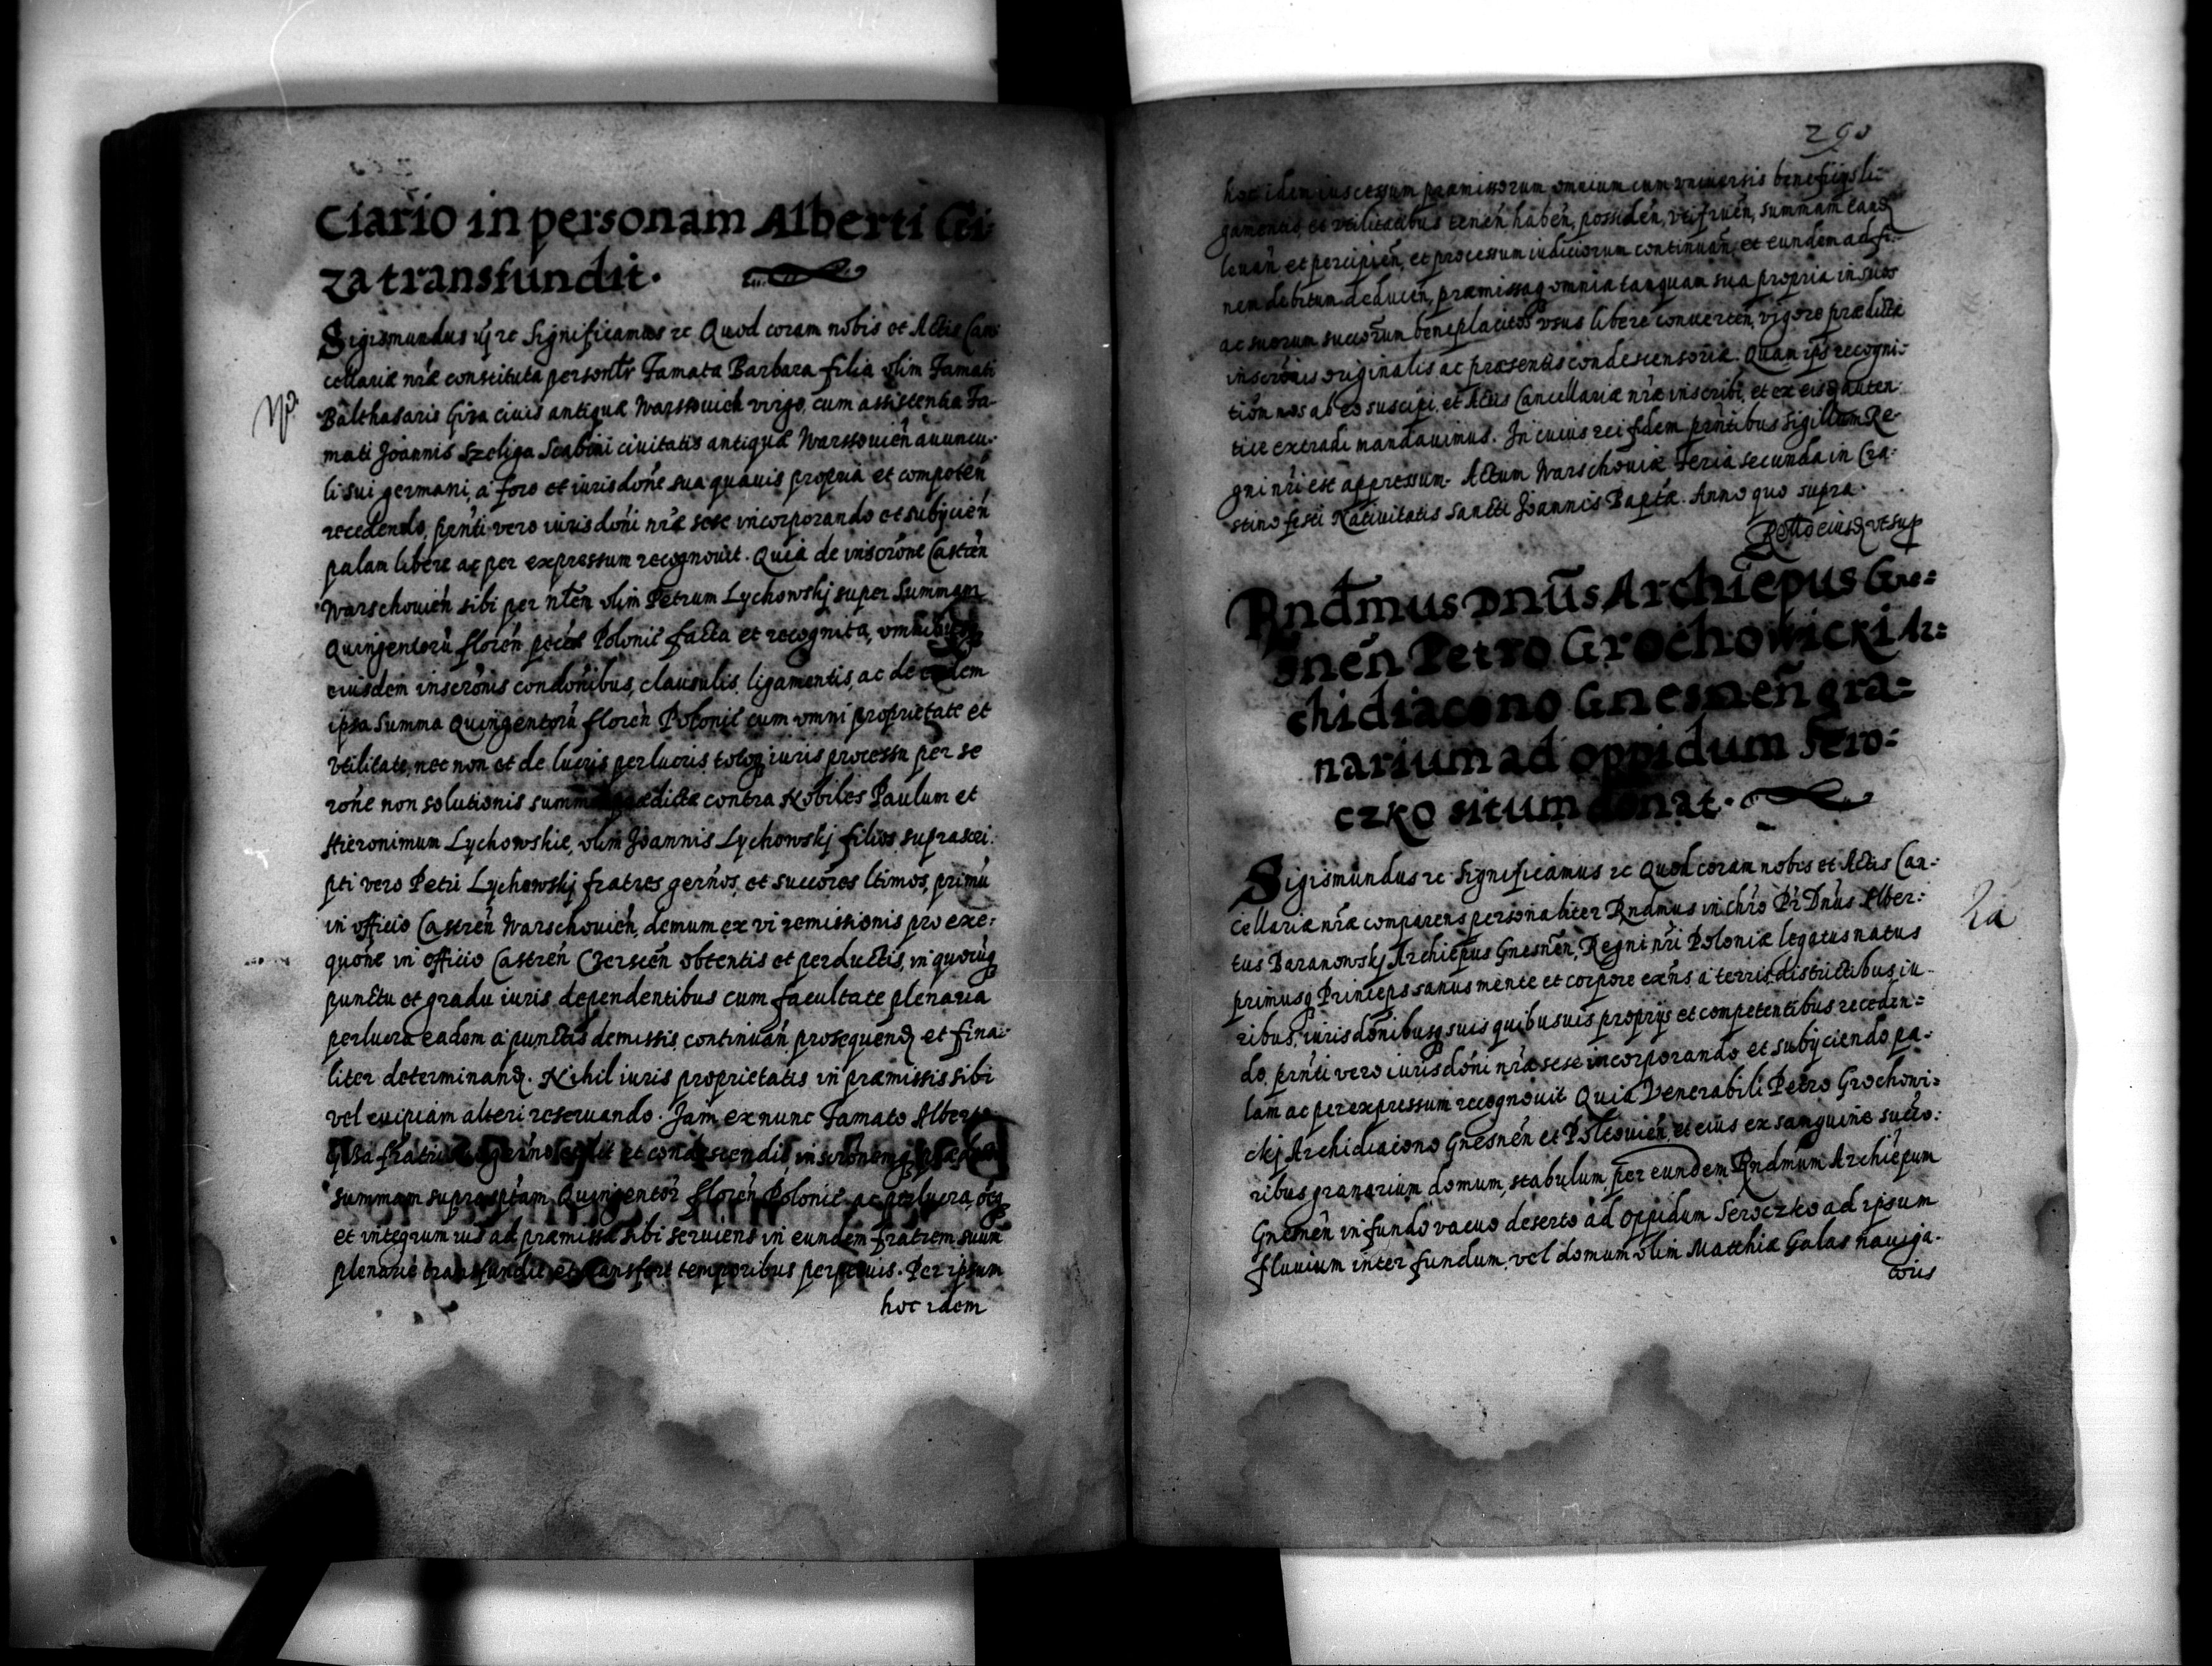 Ciario in personam Alberti Gi:
za transfundit.
Sigismundus etc Significamus etc Quod coram nobis et Actis Can
cellariæ nræ constituta personlr Famata Barbara filia olim Famati
Balthasaris Giza ciuis antiquæ Warssouien virgo, cum assistentia Fa-
mati Joannis Szeliga Scabini ciuitatis antiquæ Warssouien auuncu-
li sui germani, a foro et iurisdone sua quauis propria et competen
recedendo, prnti vero iurisdoni nræ sese incorporando et subijcien
palam libere ac per expressum recognouit. Quia de inscrone Castren
Warschouien sibi per olim Petrum Lychowskj super Summam
Quingentoru floren Polonil facta et recognita, omnibusq
eiusdem inscronis condonibus, clausulis, ligamentis, ac de eadem
ipsa Summa Quingentoru floren Polonil cum omni proprietate et
vtilitate, nec non et de lucris perlucris totoq iuris processu per se
rone non solutionis summæ prædictæ contra Nobiles Paulum et
Hieronimum Lychowskie, olim Joannis Lychowskj filios, suprascri:
pti vero Petri Lychowskj fratres gernos, et succores ltimos, primu
in officio Castren Warschouien, demum ex vi remissionis pro exe:
quone in officio Castren Czerscen obtentis et perductis, in quocuq
punctu et gradu iuris dependentibus cum facultate plenaria
perlucra eadem a punctis demissis continuan prosequend et fina:
liter determinand. Nihil iuris proprietatis in præmissis sibi
vel cuipiam alteri reseruando. Jam ex nunc Famato Alberto
Giza fratri suo gerno cedit et condescendit, inscronemq
summam suprasptam Quingentor floren Polonil ac perlucra, oeq
et integrum ius ad præmissa sibi seruiens in eundem fratrem suum
plenarie transfundit et transfert temporibus perpetuis. Per ipsum
hoc idem
290
hoc idem ius cessum præmissorum omnium cum vniuersis beneficijs li:
gamentis, et vtilitatibus tenen haben, possiden, vtifruen, summam eand
leuan et percipien, et processum iudiciorum continuan, et eundem ad fi:
nem debitum deducen, præmissaq omnia tanquam sua propria in suos
ac suorum succorum beneplacitos vsus libere conuerten, vigore prædictæ
inscronis originalis ac præsentis condescensoriæ. Quam ips recogni:
tion nos ab eo suscipi, et Actis Cancellariæ nræ inscribi, et ex eisd auten:
tice extradi mandauimus. In cuius rei fidem prntibus Sigillum Re-
gni nri est appressum. Actum Warschouiæ Feria secunda in Cra:
stino festi Natiuitatis Sancti Joannis Baptæ. Anno quo supra.
Rtto eiusd vt sup
Rndmus Dnus Archiepus Gne:
snen Petro Grochowicki Ar:
chidiacono Gnesnen gra:
narium ad oppidum Sero:
czko situm donat.
Sigismundus etc Significamus etc Quod coram nobis et Actis Can:
cellariæ nræ comparens personaliter Rndmus in chro Pr Dnus Alber:
tus Baranowskj Archiepus Gnesnen, Regni nri Poloniæ legatus natus
primusq Princeps sanus mente et corpore exns, a terris, districtibus, iu-
ribus, iurisdonibusq suis quibusuis proprijs et competentibus receden:
do, prnti vero iurisdoni nræ sese incorporando et subijciendo, pa:
lam ac per expressum recognouit Quia Venerabili Petro Grochowi:
ckj Archidiacono Gnesnen et Poltouien, et eius ex sanguine succo:
ribus granarium domum, stabulum, per eundem Rndmum Archiepum
Gnesnen in fundo vacuo deserto ad Oppidum Seroczko ad ipsum
fluuium inter fundum, vel domum olim Matthiæ Galas nauiga-
toris